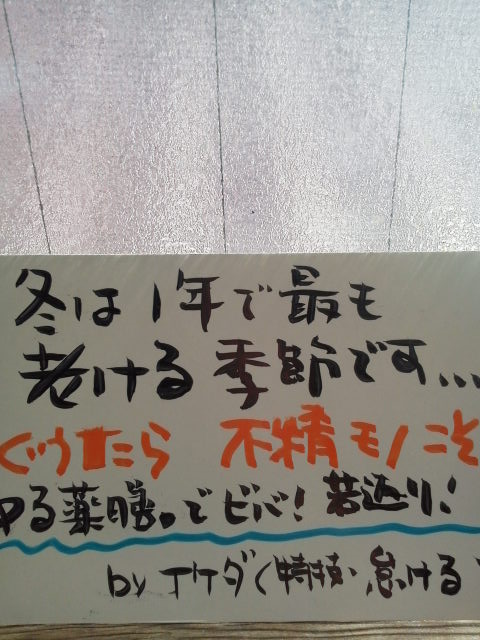 冬は1年で最も
老ける季節です...
ぐうたら 不精モノこそ
ゆる薬膳。でビバ!若返り!
by イケダ(特技・怠ける